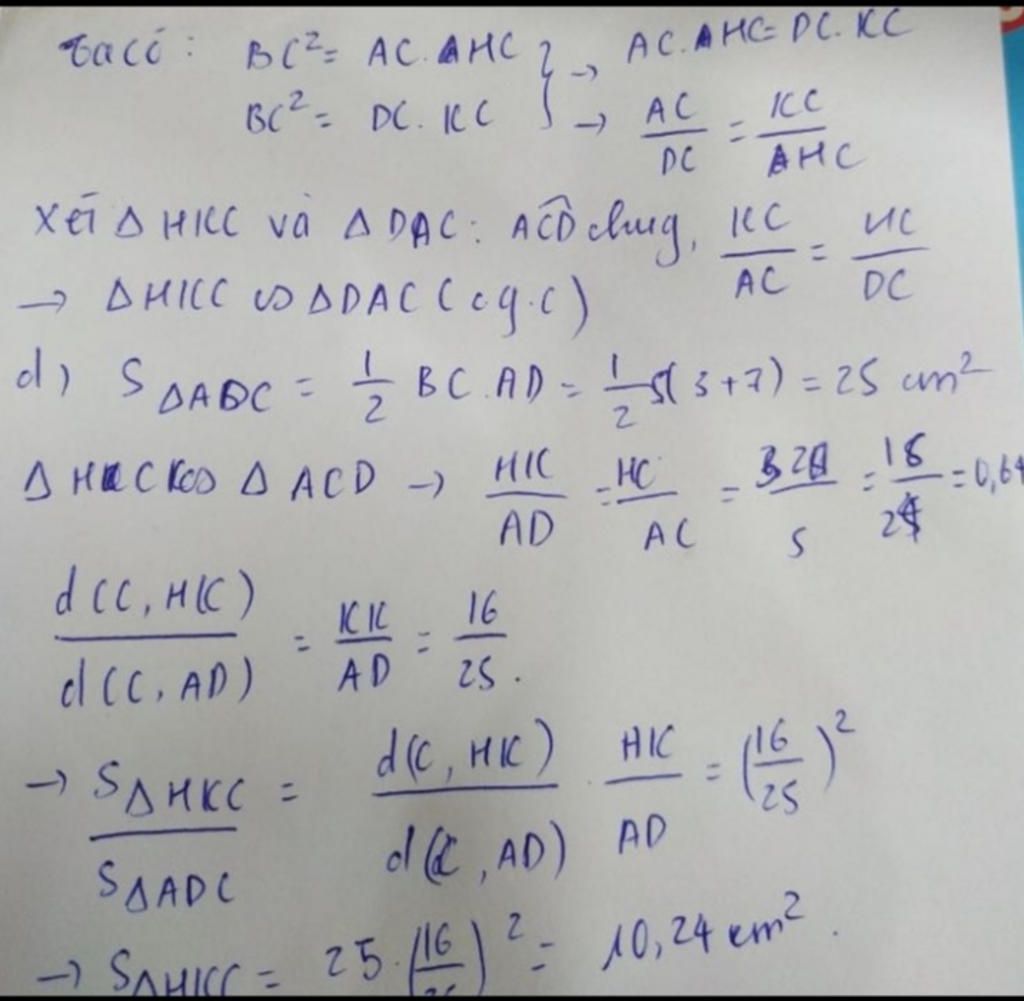 Ta có: BC² = AC.AHC } → AC.AHC = DC.KC
BC² = DC.KC } → AC/DC = KC/AHC
Xét Δ HKC và Δ DAC: ACD chung, KC/AC = HC/DC
→ Δ HKC ∽ Δ DAC (c.g.c)
d) S ΔADC = 1/2 BC.AD = 1/2 5(3+7) = 25 cm²
Δ HKC ∽ Δ ACD → HK/AD = HC/AC = 3,2/5 = 16/25 = 0,64
d(C,HK)/d(C,AD) = KK/AD = 16/25.
→ SΔHKC/SΔADC = d(C,HK)/d(C,AD) . HK/AD = (16/25)²
→ SΔHKC = 25.(16/25)² = 10,24 cm².